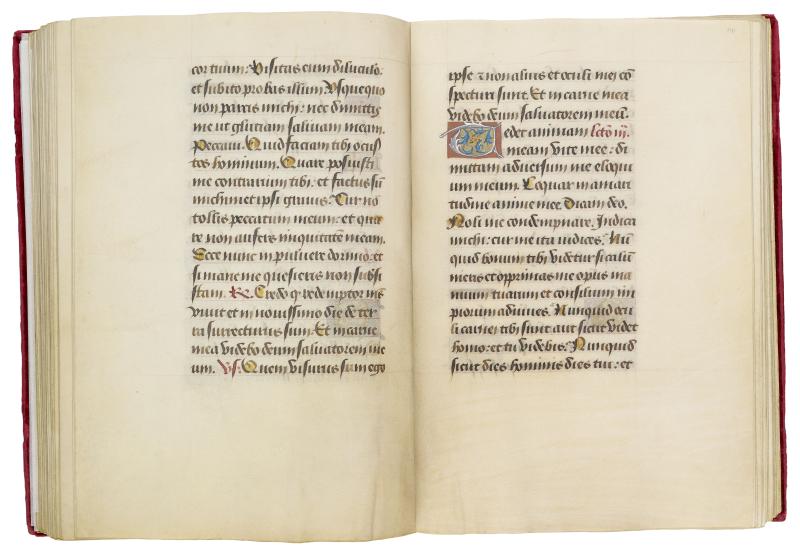 cor tuum: Visitas eum diluculo:
et subito probas illum. Vsquequo
non parcis michi: nec dimittis
me ut glutiam saliuam meam.
Peccaui. Quid faciam tibi o cus
tos hominum. Quare posuisti
me contrarium tibi: et factus sū
michimetipsi grauis. Cur nō
tollis peccatum meum: et qua
re non aufers iniquitatē meam.
Ecce nunc in puluere dormio: et
si mane me quesieris non subsi
stam. R. Credo q redemptor me9
viuit et in nouissimo die de ter
ra surrecturus sum: Et in carne
mea videbo deum saluatorem me
um. Vs. Quem visurus sum ego
ipse z non alius et oculi mei cō
specturi sunt. Et in carne mea
videbo deum saluatorem meū.
Tedet animam lcto iij.
meam vite mee: di
mittam aduersum me eloqui
um meum. Loquar in amari
tudine anime mee. Dicam deo.
Noli me condempnare. Indica
michi: cur me ita iudices. Nū
quid bonum tibi videtur si calū
nieris et opprimas me opus ma
nuum tuarum et consilium im
piorum adiuues. Nunquid ocu
li carnei tibi sunt aut sicut videt
homo: et tu videbis. Nunquid
sicut dies hominis dies tui: et